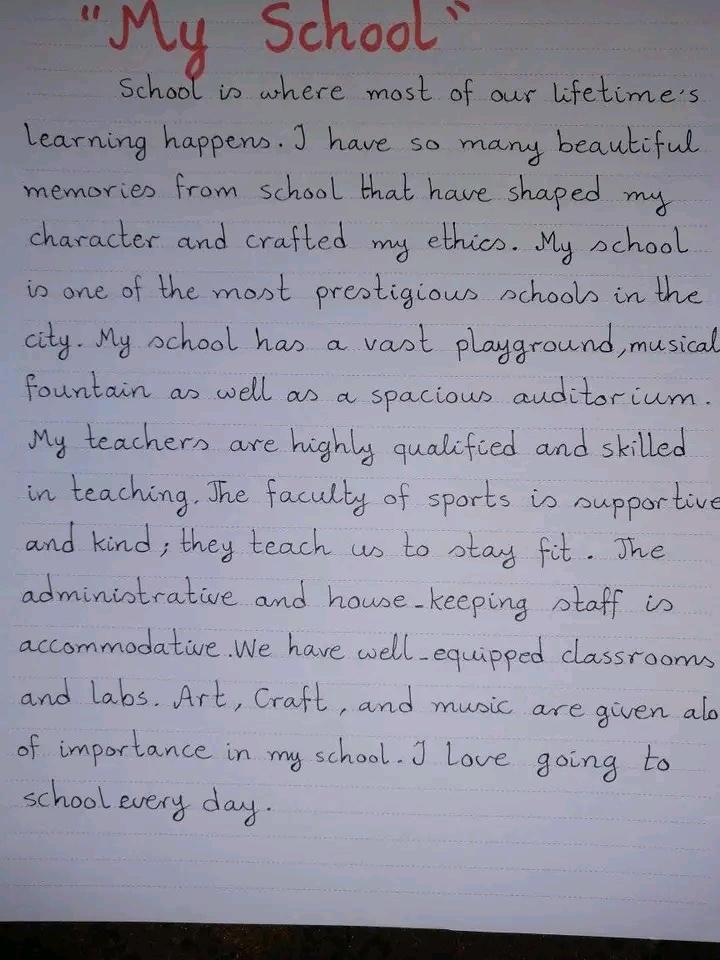 "My School"
School is where most of our lifetime's
learning happens. I have so many beautiful
memories from school that have shaped my
character and crafted my ethics. My school
is one of the most prestigious schools in the
city. My school has a vast playground, musical
fountain as well as a spacious auditorium.
My teachers are highly qualified and skilled
in teaching. The faculty of sports is supportive
and kind; they teach us to stay fit. The
administrative and house-keeping staff is
accommodative. We have well-equipped classrooms
and labs. Art, Craft, and music are given alo
of importance in my school. I love going to
school every day.